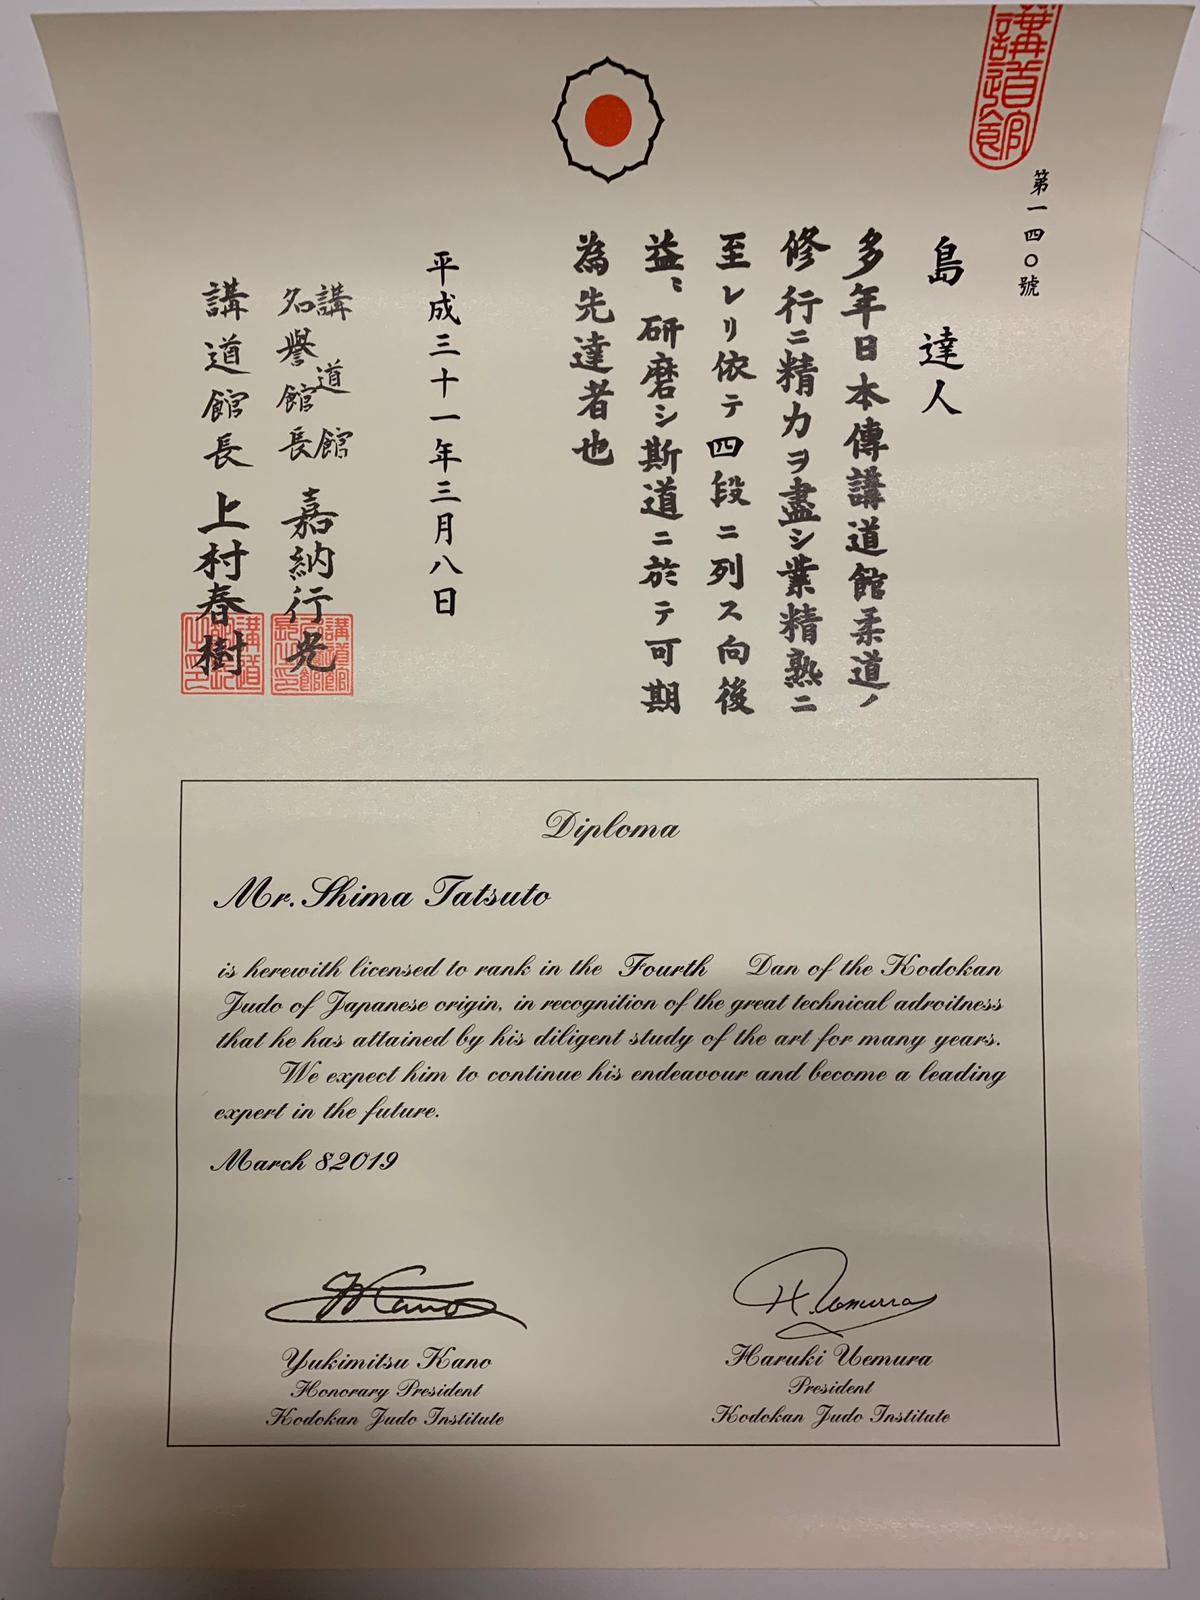 講道館
第一四〇號
島 達人
多年日本傳講道館柔道ノ
修行ニ精力ヲ盡シ業精熟ニ
至レリ依テ四段ニ列ス向後
益〻研磨シ斯道ニ於テ可期
為先達者也
平成三十一年三月八日
講道館
名譽館長 嘉納行光
講道館長 上村春樹
Diploma
Mr. Shima Tatsuto
is herewith licensed to rank in the Fourth Dan of the Kodokan
Judo of Japanese origin, in recognition of the great technical adroitness
that he has attained by his diligent study of the art for many years.
We expect him to continue his endeavour and become a leading
expert in the future.
March 8 2019
Y Kano
H. Uemura
Yukimitsu Kano
Honorary President
Kodokan Judo Institute
Haruki Uemura
President
Kodokan Judo Institute